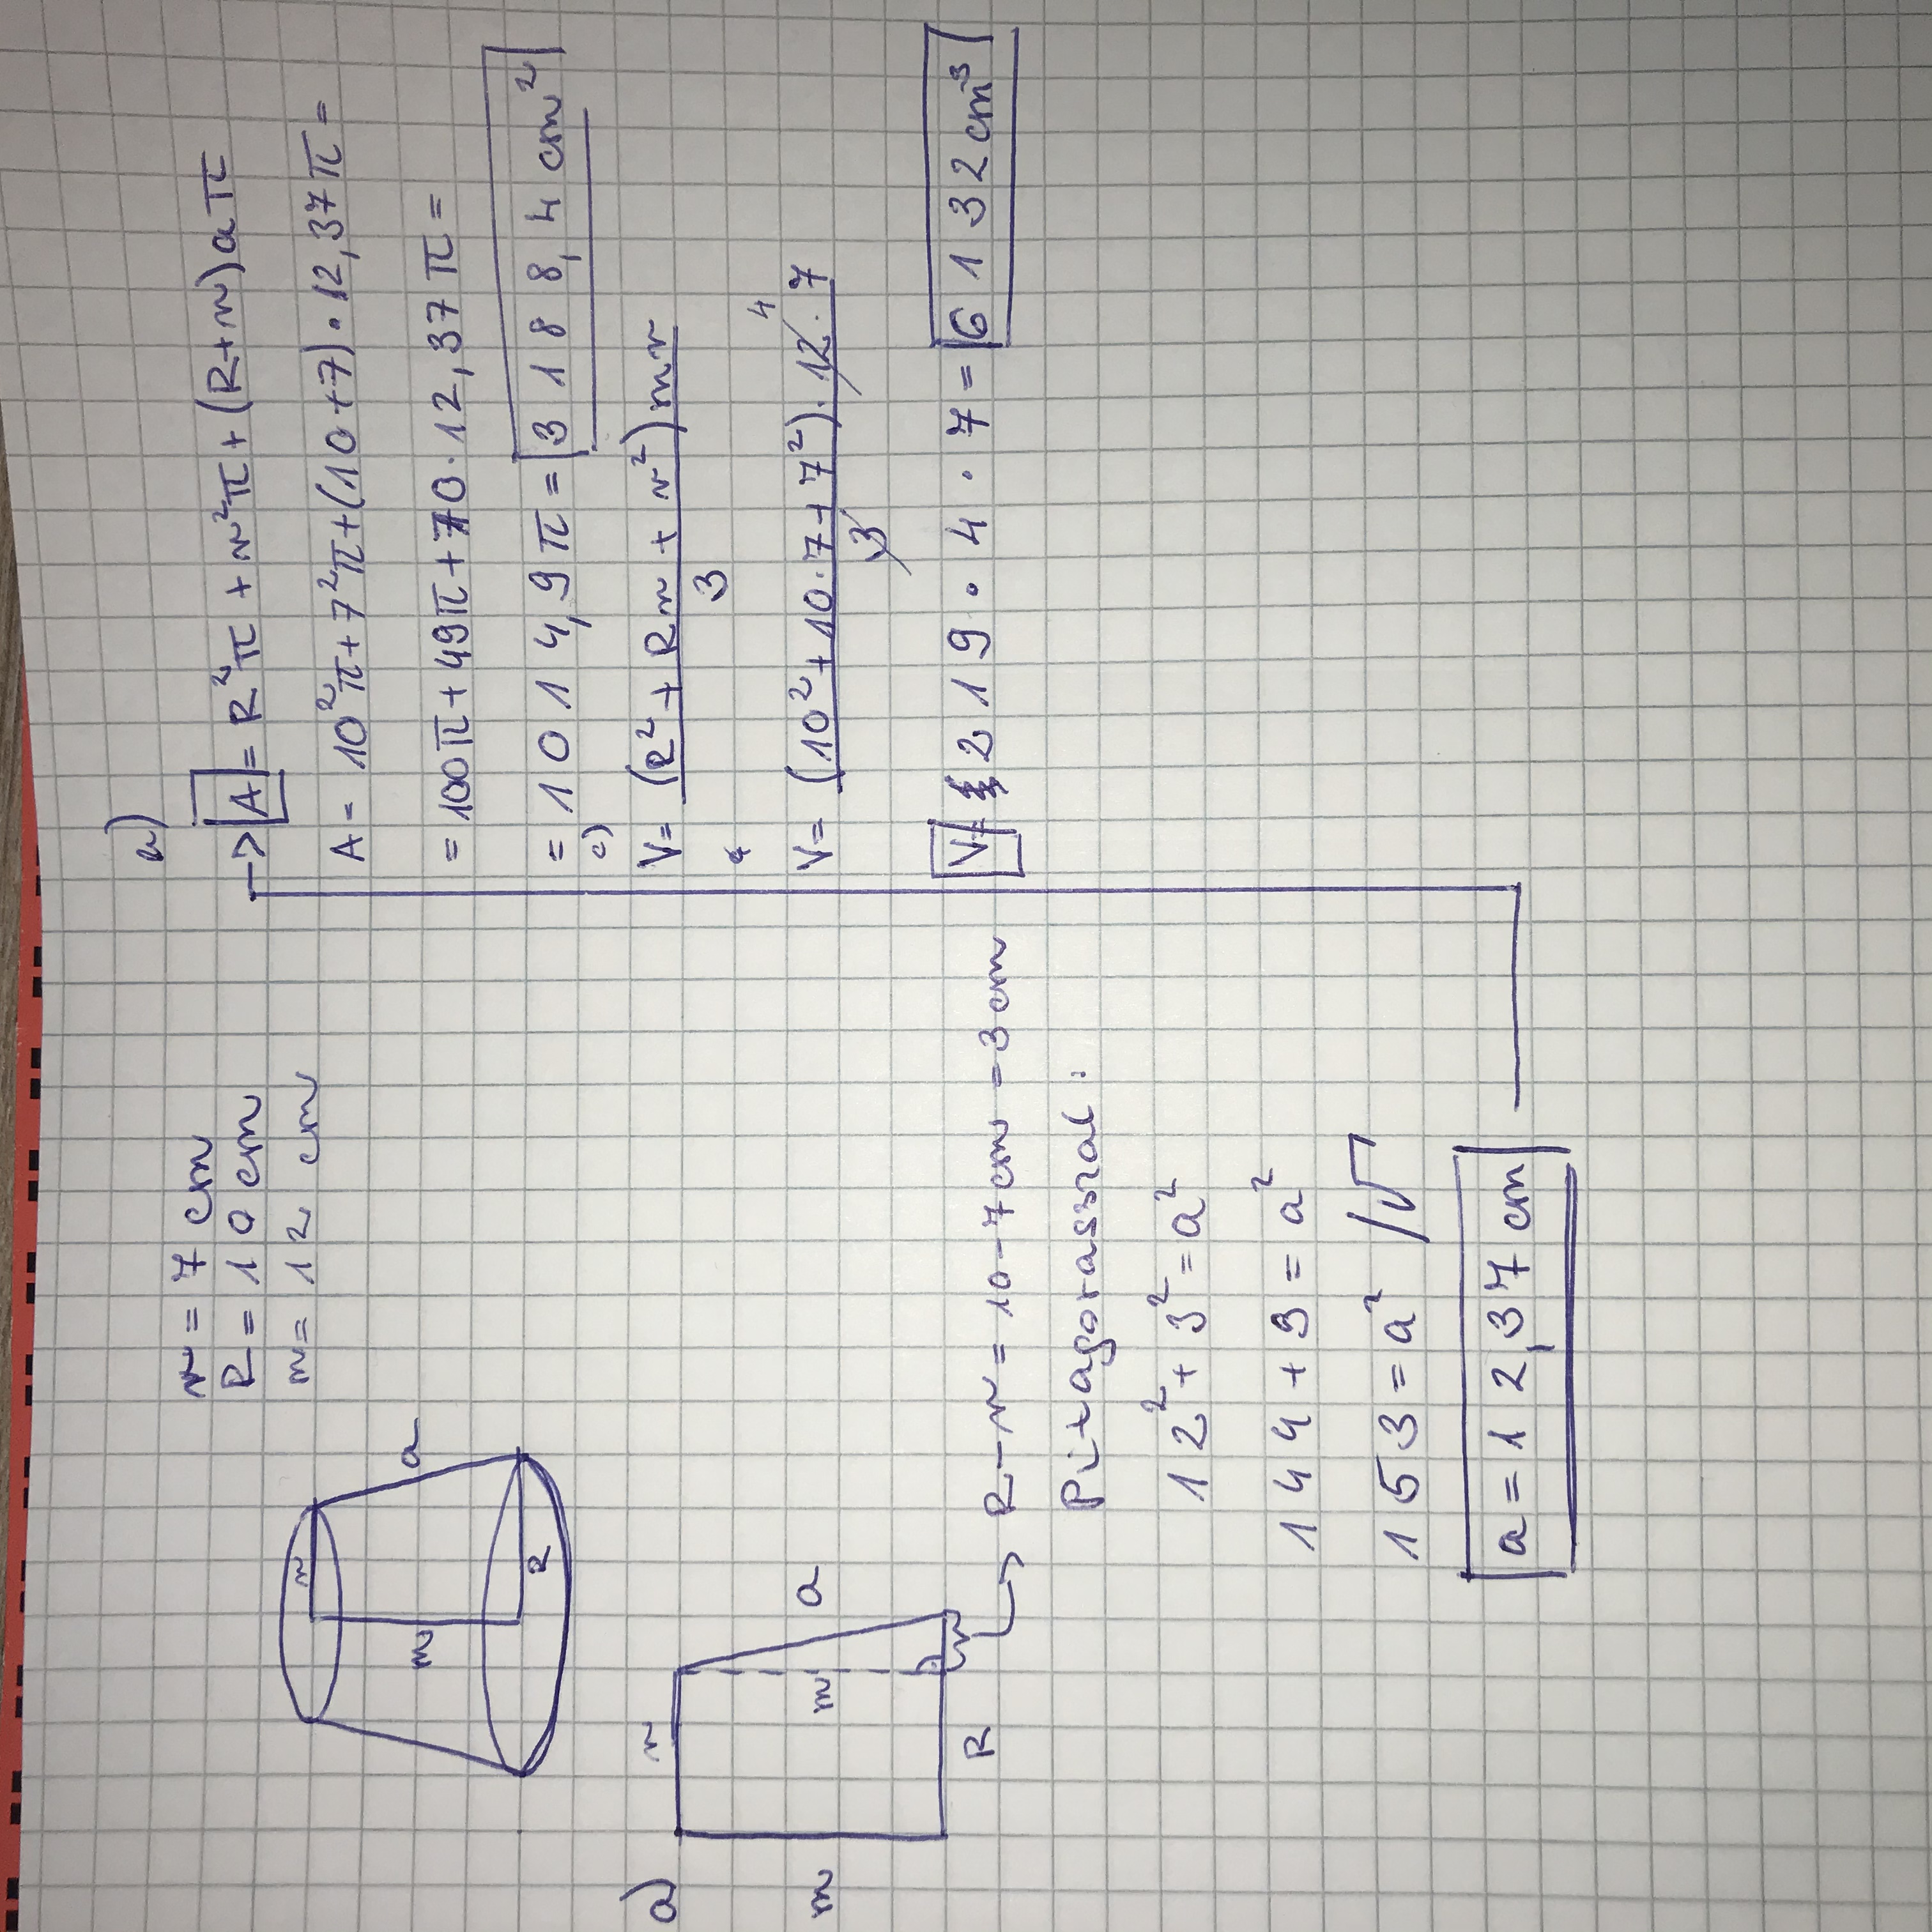 r = 7 cm
R = 10 cm
m = 12 cm
r
a
m
R
a)
r
m
m
a
R
R - r = 10 - 7 cm = 3 cm
Pitagorasszal:
12² + 3² = a²
144 + 9 = a²
153 = a² /√
a = 12,37 cm
→ A = R²π + r²π + (R+r)aπ
A = 10²π + 7²π + (10+7) · 12,37π =
= 100π + 49π + 70 · 12,37π =
= 1014,9π = 3188,4 cm²
c)
V = (R² + Rr + r²)mr / 3
V = (10² + 10·7 + 7²) · 12 · 7 / 3
4
V = 219 · 4 · 7 = 6132 cm³